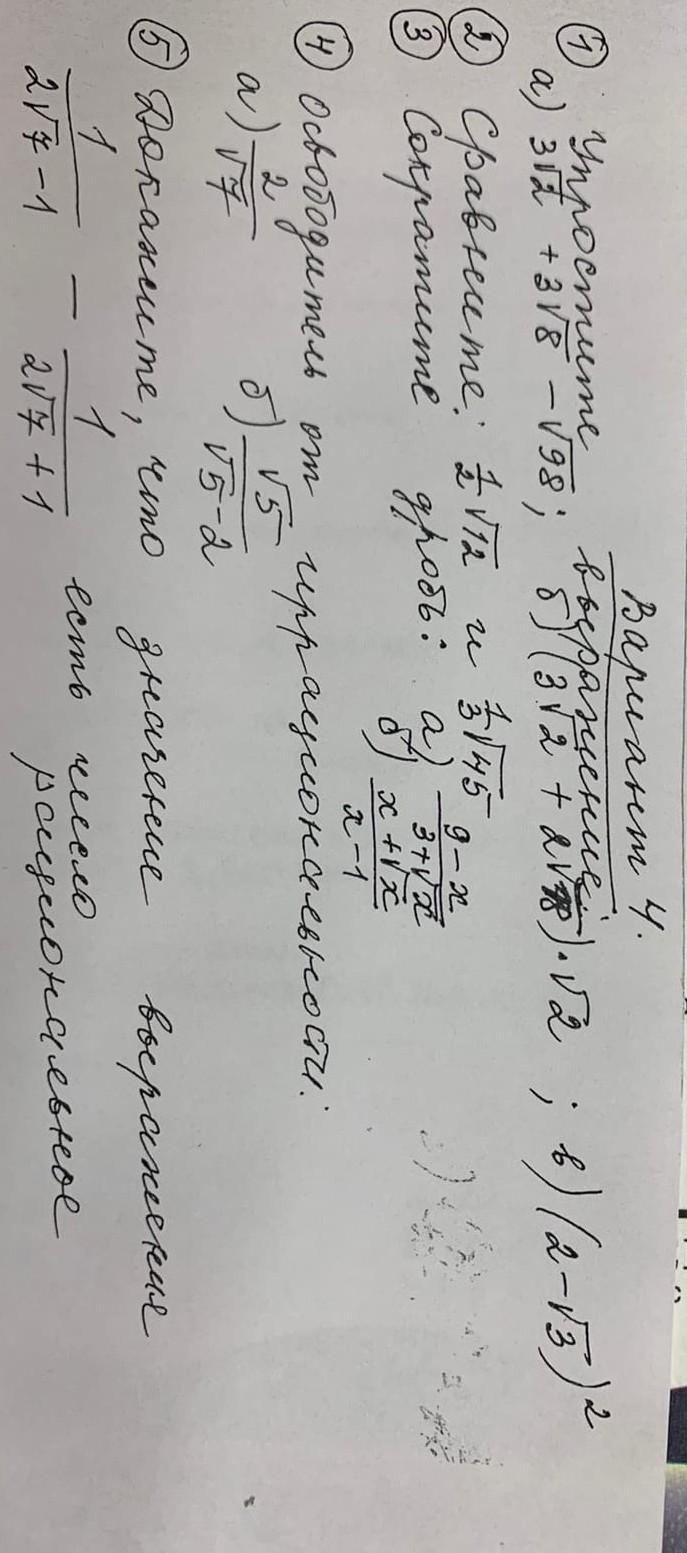 Вариант 4.
① Упростите выражение:
а) 3√2 + 3√8 − √98; б) (3√2 + 2√18)·√2 ; в) (2−√3)²
② Сравните: 1/2 √12 и 1/3 √45
③ Сократите дробь: а) (9−x)/(3+√x)
б) (x+√x)/(x−1)
④ Освободитель от иррациональности:
а) 2/√7 б) √5/(√5−2)
⑤ Докажите, что значение выражения
1/(2√7−1) − 1/(2√7+1) есть число
рациональное